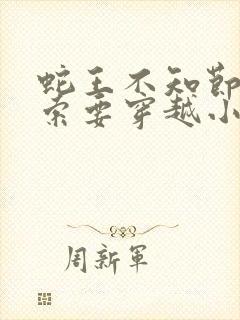 蛇王不知节
索要穿越小
周新军